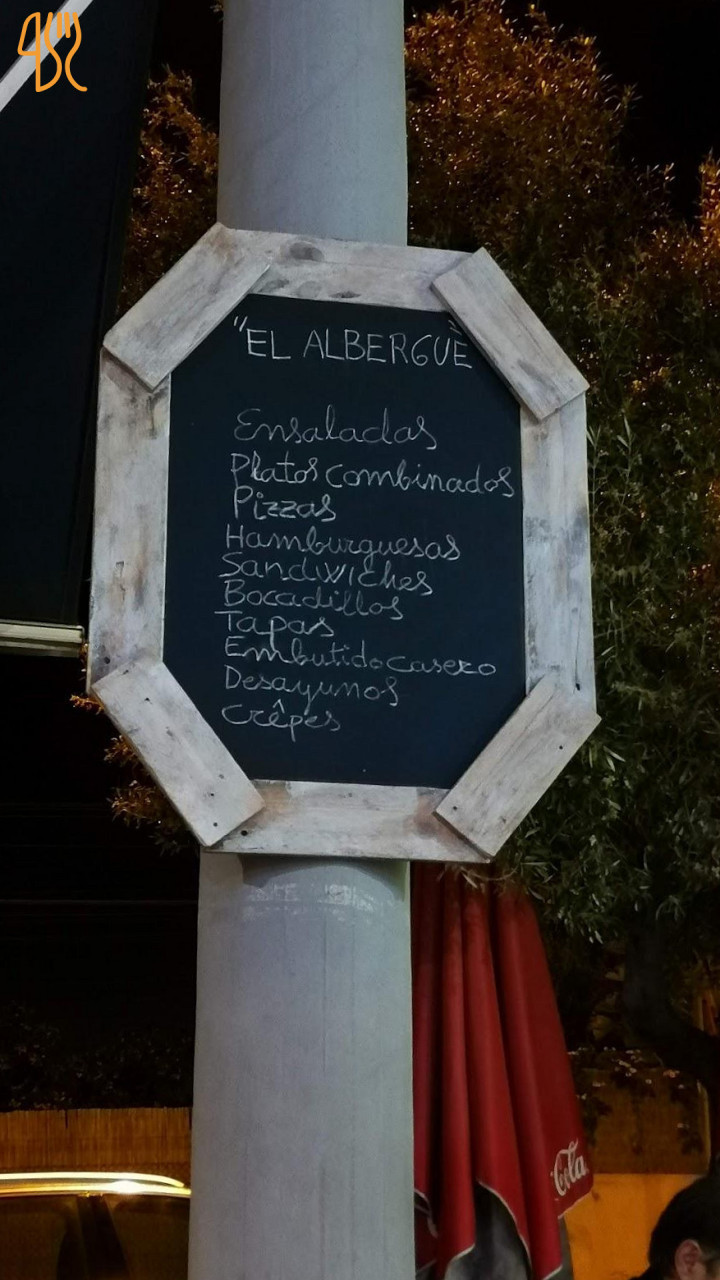 "EL ALBERGUÈ"
Ensaladas
Platos combinados
Pizzas
Hamburguesas
Sandwiches
Bocadillos
Tapas
Embutido casero
Desayunos
Crêpes
Cola